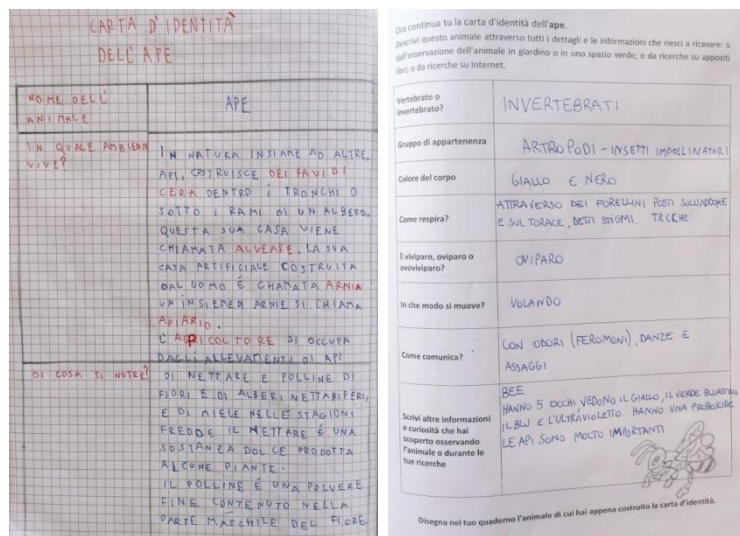 CARTA D'IDENTITÀ
DELL'APE
NOME DELL'
ANIMALE
APE
IN QUALE AMBIENTE
VIVE?
IN NATURA INSIAME AD ALTRE,
API, COSTRUISCE DEI FAVI DI
CERA DENTRO I TRONCHI O
SOTTO I RAMI DI UN ALBERO.
QUESTA SUA CASA VIENE
CHIAMATA ALVEARE. LA SUA
CASA ARTIFICIALE COSTRUITA
DAL UOMO É CHAMATA ARNIA
UN INSIEMEDI ARNIE SI CHIAMA
APIARIO.
L'AGRICOLTORE SI OCCUPA
DAGLI ALLEVAMENTI DI API
DI COSA SI NUTRE?
DI NETTARE E POLLINE DI
FIORI E DI ALBERI NETTARIFERI,
E DI MIELE NELLE STAGIONI
FREDDE IL NETTARE É UNA
SOSTANZA DOLCE PRODOTTA
ALCUNE PIANTE.
IL POLLINE É UNA POLVERE
FINE CONTENUTO NELLA
PARTE MASCHILE DEL FIORE
Ora continua tu la carta d'identità dell'ape.
Descrivi questo animale attraverso tutti i dettagli e le informazioni che riesci a ricavare: o
dall'osservazione dell'animale in giardino o in uno spazio verde; o da ricerche su appositi
libri; o da ricerche su Internet.
Vertebrato o
invertebrato?
INVERTEBRATI
Gruppo di appartenenza
ARTROPODI - INSETTI IMPOLLINATORI
Colore del corpo
GIALLO E NERO
Come respira?
ATTRAVERSO DEI FORELLINI POSTI SULL'ADDOME
E SUL TORACE, DETTI STIGMI.
È viviparo, oviparo o
ovoviviparo?
OVIPARO
In che modo si muove?
VOLANDO
Come comunica?
CON ODORI (FEROMONI), DANZE E
ASSAGGI
Scrivi altre informazioni
e curiosità che hai
scoperto osservando
l'animale o durante le
tue ricerche
BEE
HANNO 5 OCCHI VEDONO IL GIALLO, IL VERDE BLUASTRO
IL BLU E L'ULTRAVIOLETTO. HANNO UNA PROBOSCIDE
LE API SONO MOLTO IMPORTANTI
Disegna nel tuo quaderno l'animale di cui hai appena costruito la carta d'identità.